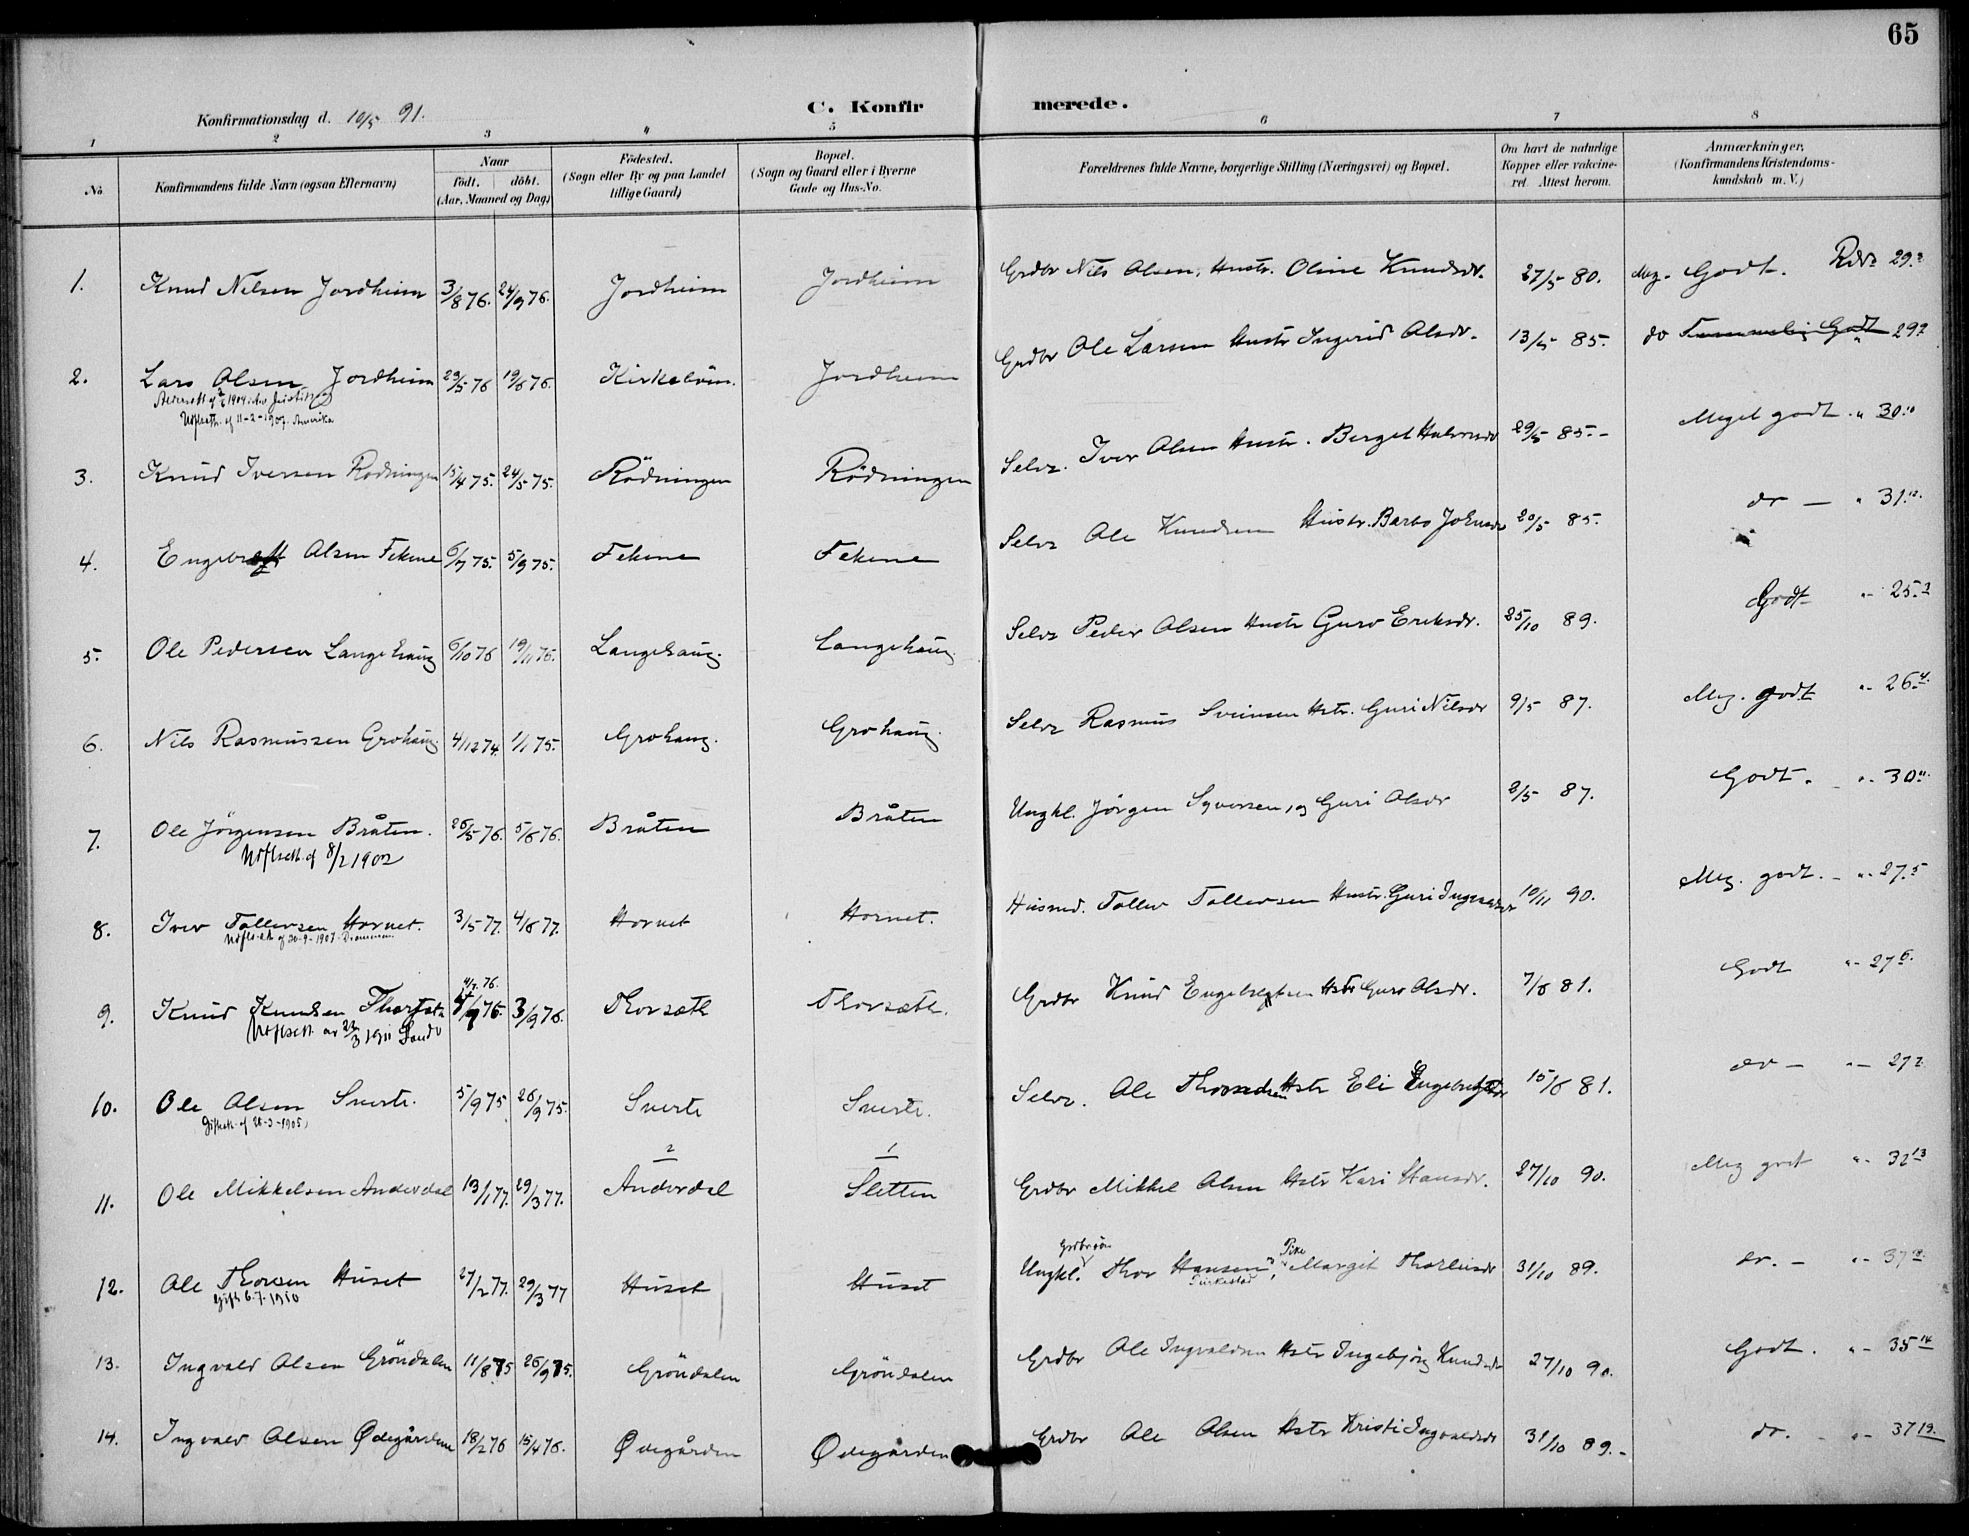 65
C. Konfirmerede.
Konfirmationsdag d. 10/5 91.
1 2 3 4 5 6 7 8
No Konfirmandens fulde Navn (ogsaa Efternavn) Naar födt. döbt. (Aar, Maaned og Dag) Födested. (Sogn eller By og paa Landet tillige Gaard) Bopæl. (Sogn og Gaard eller i Byerne Gade og Hus-No. Forældrenes fulde Navne, borgerlige Stilling (Næringsvei) og Bopæl. Om havt de naturlige Kopper eller vakcineret. Attest herom. Anmærkninger, (Konfirmandens Kristendomskundskab m. V.)
1. Knud Nilsen Jordheim 3/8 76. 24/9 76. Jordheim Jordheim Grdbr Nils Olsen, Hustr. Oline Knudsdr. 27/5 80. Meg. Godt.
2. Lars Olsen Jordheim 29/5 76 19/6 76. Jordheim Grdbr Ole Larsen Hustr Ingerid Olsdr. 13/5 85. do
11-2-1907. Amerika
3. Knud Iversen Rödningen 15/4 75. 24/5 75. Rödningen Rödningen Selvz. Iver Olsen Hustr. Berget 29/5 85. Meget godt 30.
4. Olsen Fekene 6/7 75. 5/9 75. Fekene Fekene Selvz Ole Knudsen Hustr. Barbo 20/5 85. do — " 31.
5. Ole Pedersen Langehaug 6/10 76 19/11 76. Langehaug. Langehaug. Selvz Peder Olsen Hustr Guro Eriksdr. 25/10 89. Godt
6. Nils Rasmussen Grohaug 4/12 74. 1/1 75. Grohaug. Grohaug. Selvz Rasmus Sveinsen Hstr. Guri Nilsdr 9/5 87. Meg. godt " 26.4.
7. Ole Jörgensen Bråten. 26/5 76. 5/6 76. Bråten Bråten Ungkl. Jörgen Syversen, og Guri Olsdr 2/5 87. Godt. " 30
8/2 1902
8. Iver Tollevsen Hornet. 3/5 77. 4/6 77. Hornet Hornet. Husmd. Tollev Tollevsen Hustr. Guri 10/11 90. Meg. godt. " 27.5
20-9-1907. Drammen
9. Knud Knudsen 4/7. 76. 3/9 76. Thorsæth Thorsæth. Grdbr Knud Engebretsen Hstr Guro Olsdr. 7/6 81. Godt " 27 6.
22/3 1911
10. Ole Olsen 5/9 75 26/9 75. Selvz. Ole Hstr Eli 15/6 81. do — " 27
2 1
11. Ole Mikkelsen Anderdal 13/1 77. 29/3 77. Anderdal Sletten Grdbr Mikkel Olsen Hstr Kari Hansdr. 27/10 90. Meg godt " 32 13
12. Ole Thorsen Huset 27/2 77. 29/3 77 Huset Huset Ungkl. Thor Hansen Pike Margit 31/10 89. do. — " 37
Gift 6.7.1910
13. Ingvald Olsen Gröndalen 11/8 75 26/9 75. Gröndalen Gröndalen Grdbr Ole Ingvaldsen Hstr Ingebjörg Knudsdr 27/10 90. Godt. " 35 14
14. Ingvald Olsen Ødegården 18/2 76 15/4 76. Ødegården Ødegården Grdbr Ole Olsen Hstr Kristi Ingvaldsdr 31/10 89. do. " 37 19.